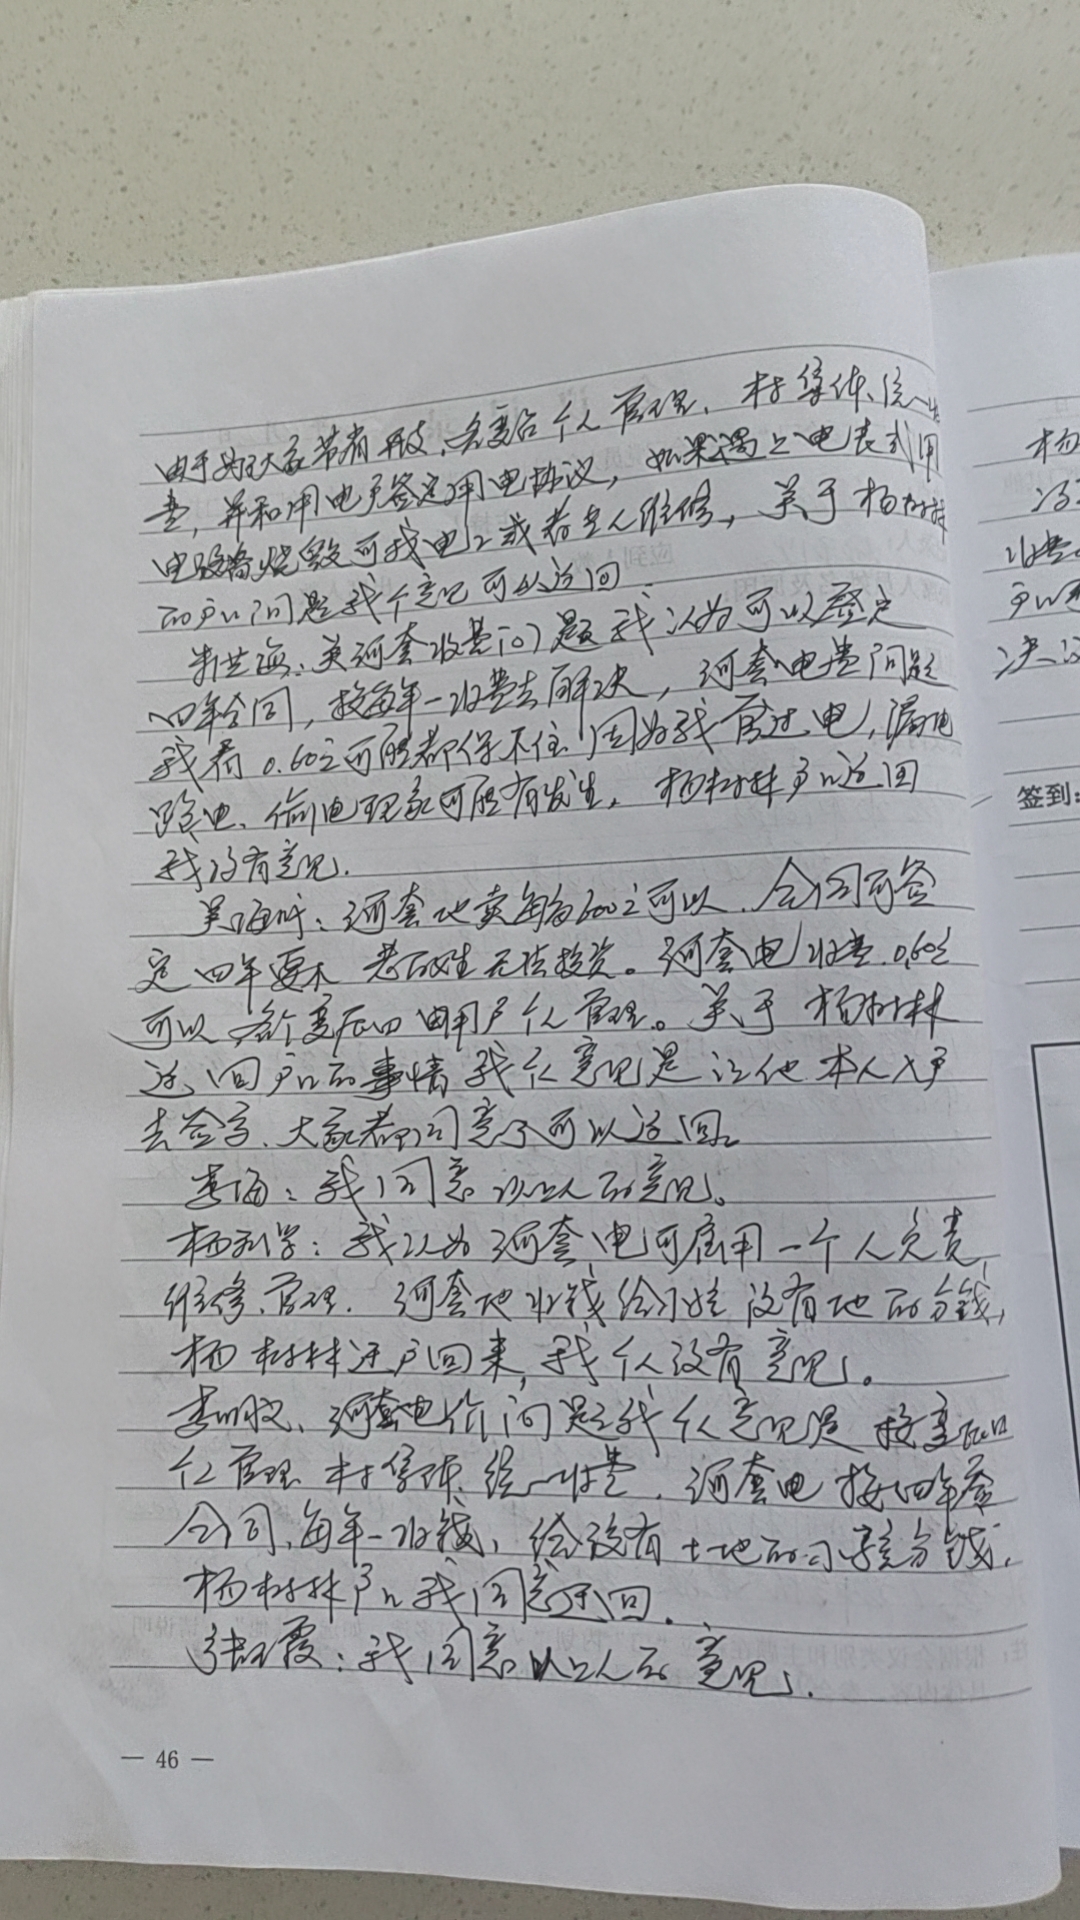 由于 大家 开支、各变台个人管理、村集体统一收
费，并和用电户签定用电协议，如果遇上电表或用
电设备烧毁可找电工或者专人维修，关于杨树林
的户口问题我个意见可以迁回
海：关河套收费问题我认为可以签定
四年合同，按每年一收费去解决，河套电费问题
我看0.60元可能都保不住因为我管过电，漏电
跑电、偷电现象可能有发生，杨树林户口迁回
我没有意见.
吴 ：河套地卖每亩600元可以，合同可签
定四年要不老百姓无法投资。河套电收费0.60元
可以各个变压四由用户个人管理。关于杨树林
迁回户口的事情我个人意见是让他本人入户
去签字、大家都同意了可以迁回。
李海：我同意以上人的意见。
杨 学：我认为河套电可雇用一个人负责，
维修、管理. 河套地收钱给小娃没有地的分钱，
杨树林迁户回来，我个人没有意见。
李 ：河套电价问题我个人意见是按变压口
个人管理村集体统一收费，河套电按四年签
合同，每年一收钱，给没有土地的小孩分钱，
杨树林户口我同意迁回.
张 霞：我同意以上人的意见.
— 46 —
杨
收费
决议
签到：